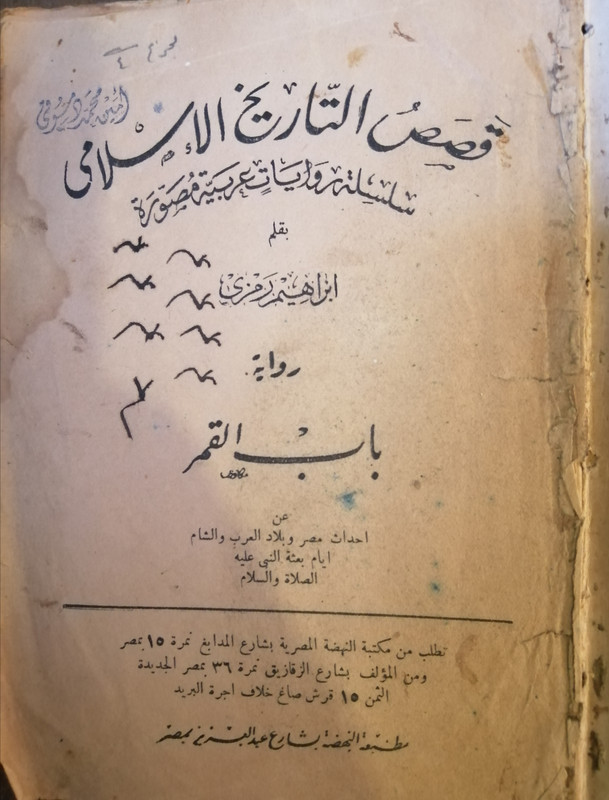 أمين محمد دسوقي
قصص التاريخ الإسلامي
سلسلة روايات عربية مصورة
بقلم
ابراهيم رمزي
رواية
باب القمر
عن
احداث مصر وبلاد العرب والشام
ايام بعثة النبي عليه
الصلاة والسلام
تطلب من مكتبة النهضة المصرية بشارع المدابغ نمرة ١٥ بمصر
ومن المؤلف بشارع الزقازيق نمرة ٣٦ بمصر الجديدة
الثمن ١٥ قرش صاغ خلاف اجرة البريد
مطبعة النهضة بشارع عبد العزيز بمصر